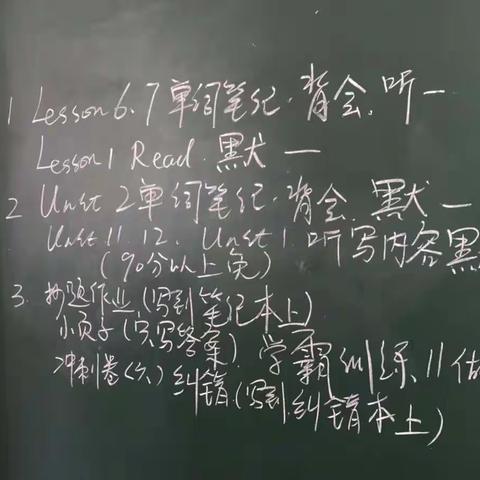 1 Lesson 6、7 单词笔记.背会.听一
Lesson 1 Read.默一
2 Unit 2单词笔记.背会.默一
Unit 11.12、Unit 1.听写内容默
(90分以上免)
3. 抄题作业(写到笔记本上)
小页子(只写答案).学霸训练、11做
冲刺卷(六)纠错(写到纠错本上)